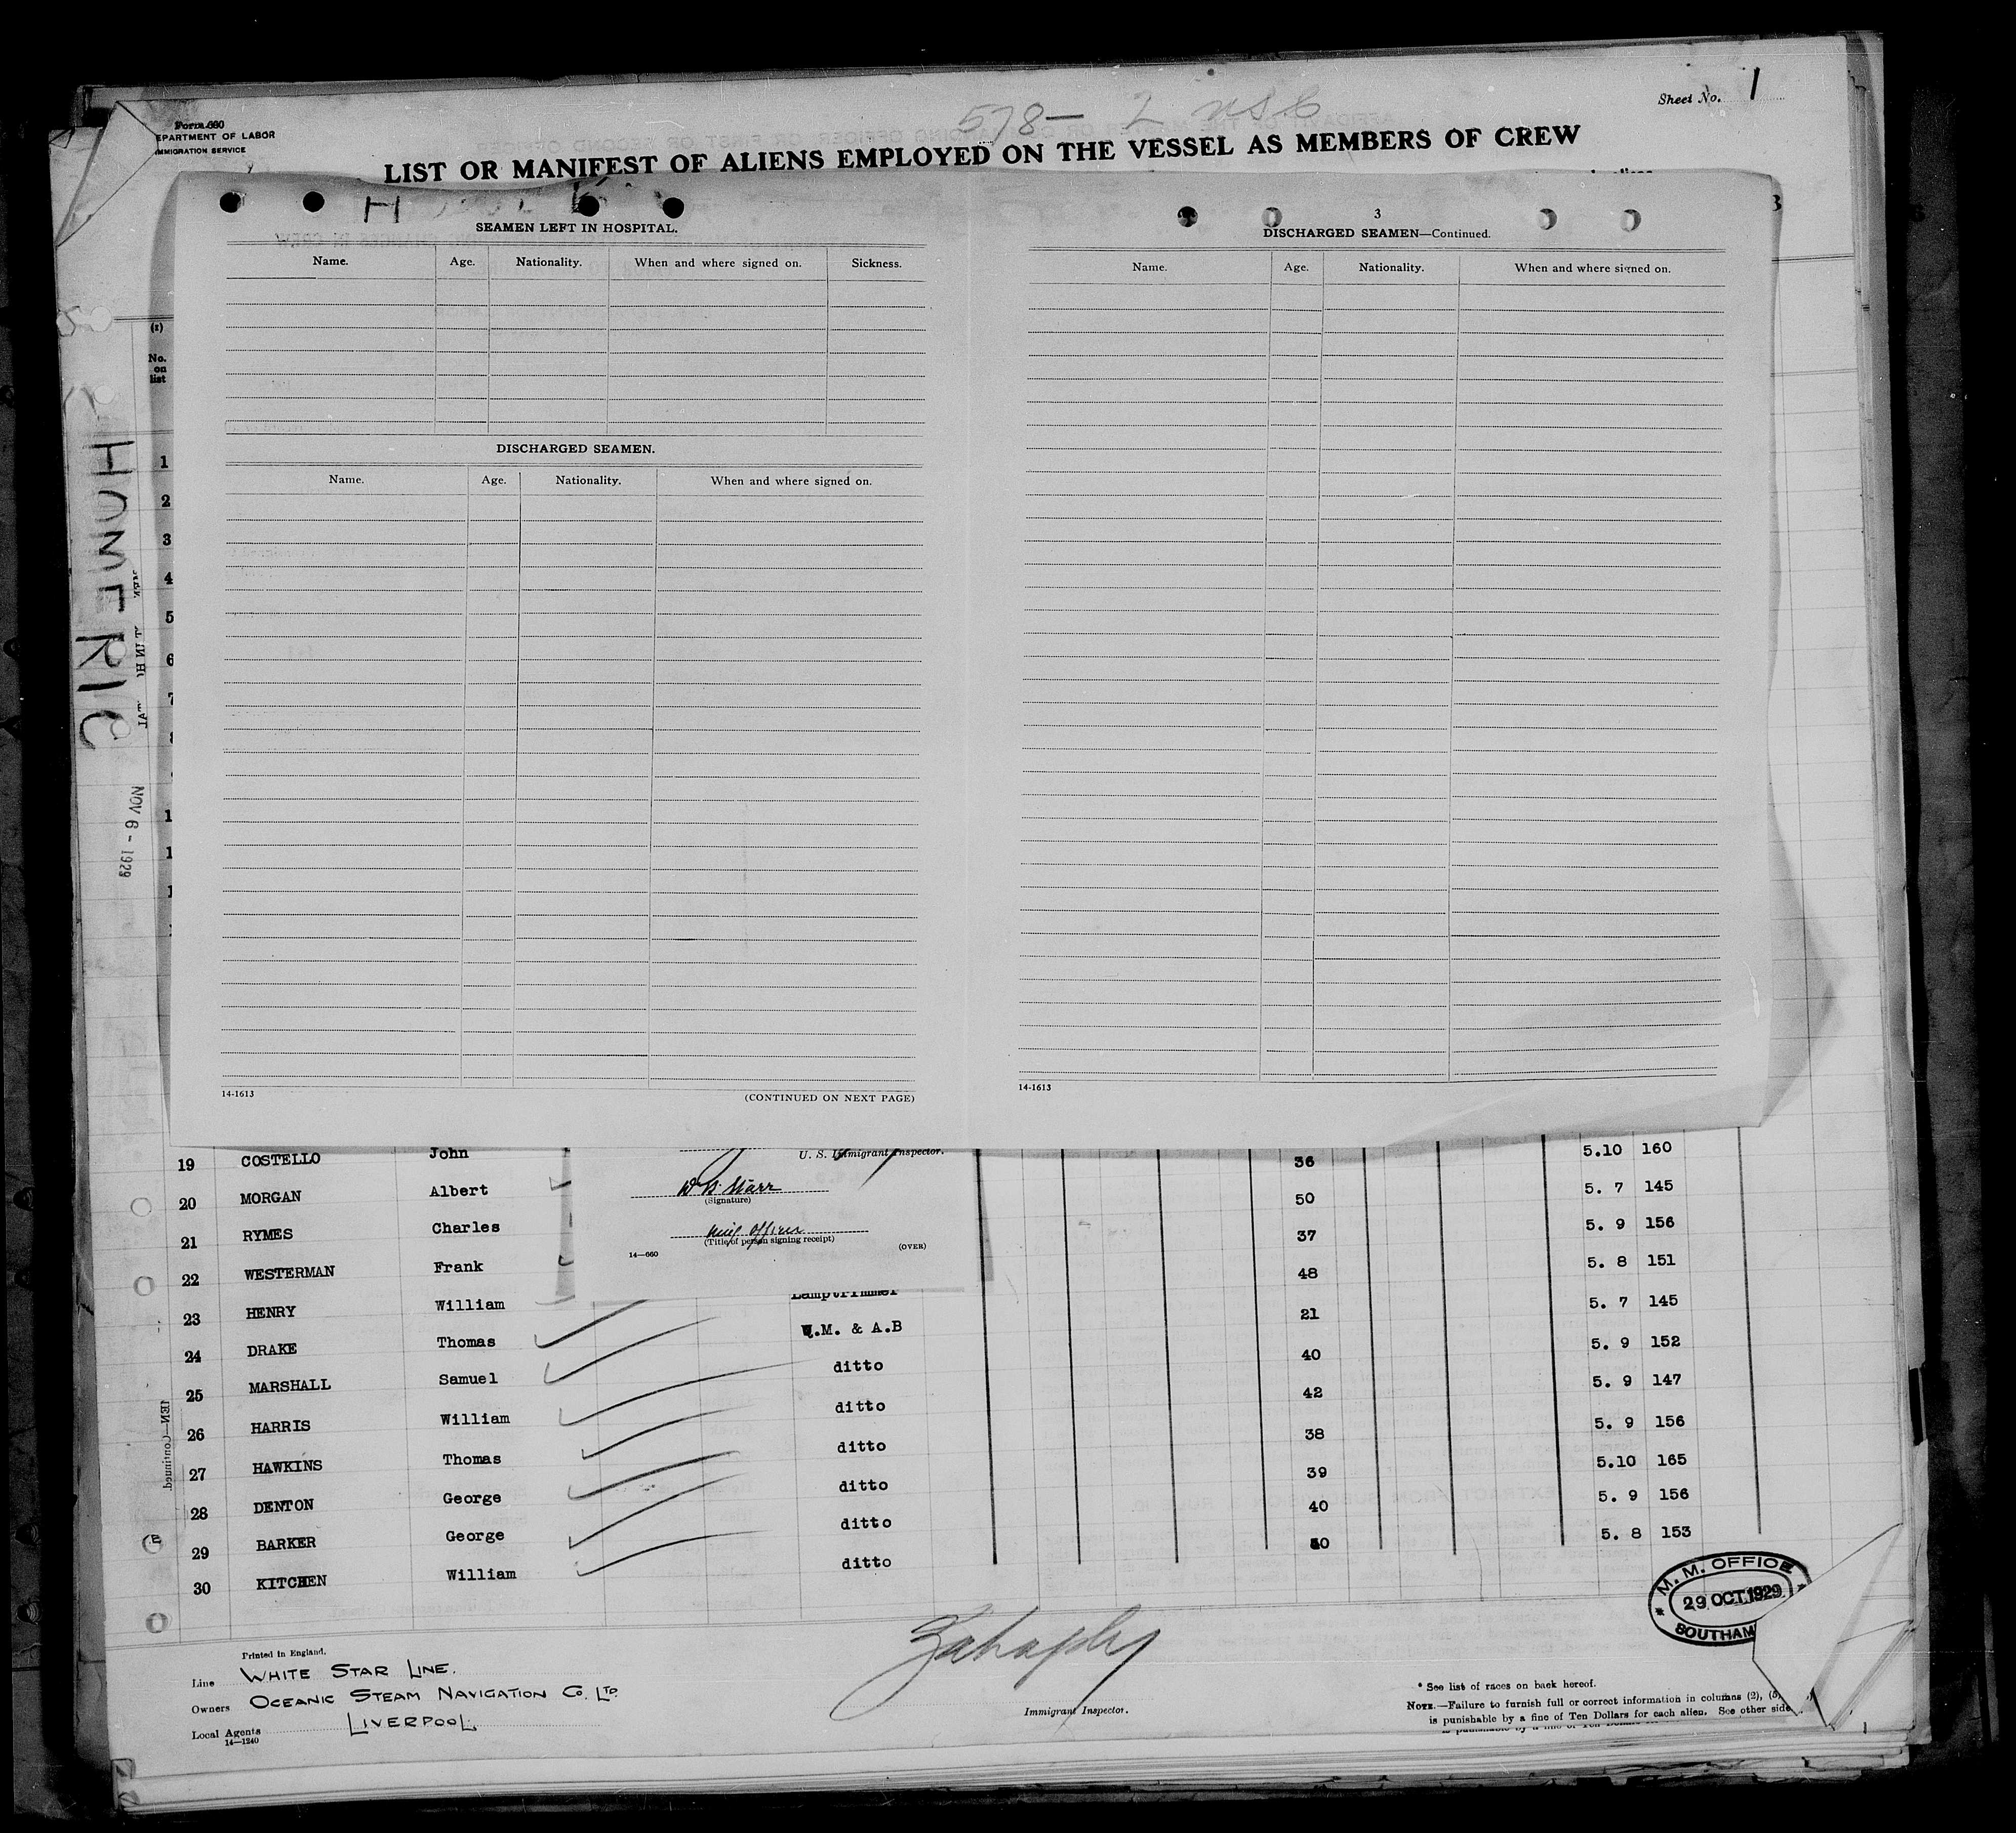 Sheet No. 1
578- 2 USC
Form 680
EPARTMENT OF LABOR
MMIGRATION SERVICE
LIST OR MANIFEST OF ALIENS EMPLOYED ON THE VESSEL AS MEMBERS OF CREW
H
SEAMEN LEFT IN HOSPITAL.
Name. Age. Nationality. When and where signed on. Sickness.
DISCHARGED SEAMEN.
Name. Age. Nationality. When and where signed on.
14-1613
(CONTINUED ON NEXT PAGE)
3
DISCHARGED SEAMEN—Continued.
Name. Age. Nationality. When and where signed on.
14-1613
(1)
No.
on
list
1
2
3
4
5
6
7
HOMERIC
NOV 6 - 1929
19 COSTELLO John 36 5.10 160
20 MORGAN Albert 50 5. 7 145
21 RYMES Charles 37 5. 9 156
22 WESTERMAN Frank 48 5. 8 151
23 HENRY William Lamptrimmer 21 5. 7 145
24 DRAKE Thomas Q.M. & A.B 40 5. 9 152
25 MARSHALL Samuel ditto 42 5. 9 147
26 HARRIS William ditto 38 5. 9 156
27 HAWKINS Thomas ditto 39 5.10 165
28 DENTON George ditto 40 5. 9 156
29 BARKER George ditto 40 5. 8 153
30 KITCHEN William ditto
U. S. Immigrant Inspector.
(Signature)
Officer
(Title of person signing receipt)
14—660
(OVER)
Printed in England.
Line WHITE STAR LINE.
Owners OCEANIC STEAM NAVIGATION CO. LTD.
Local Agents LIVERPOOL.
14—1240
Immigrant Inspector.
M. M. OFFICE
29 OCT 1929
SOUTHAM
* See list of races on back hereof.
NOTE.—Failure to furnish full or correct information in columns (2), (5),
is punishable by a fine of Ten Dollars for each alien. See other side